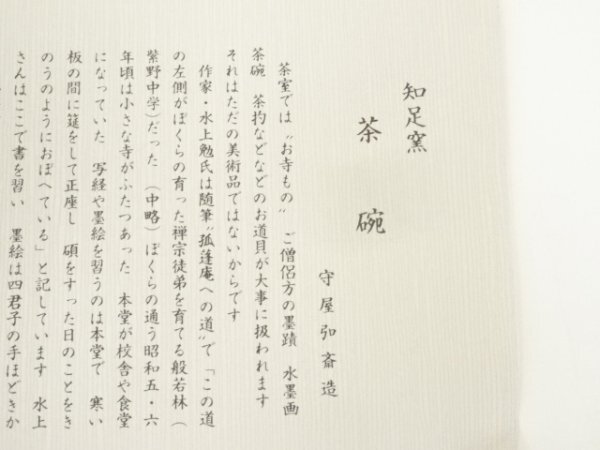 知足窯
茶碗
守屋弘斎造
茶室では〝お寺もの〟 ご僧侶方の墨蹟 水墨画
茶碗 茶杓などなどのお道具が大事に扱われます
それはただの美術品ではないからです
作家・水上勉氏は随筆〝孤蓬庵への道〟で「この道
の左側がぼくらの育った禅宗徒弟を育てる般若林（
紫野中学）だった （中略）ぼくらの通う昭和五・六
年頃は小さな寺がふたつあった 本堂が校舎や食堂
になっていた 写経や墨絵を習うのは本堂で 寒い
板の間に筵をして正座し 硯をすった日のことをき
のうのようにおぼへている」と記しています 水上
さんはここで書を習い 墨絵は四君子の手ほどきか